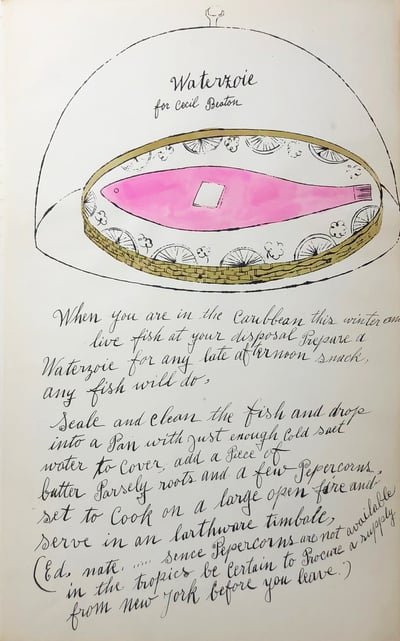 Waterzoie
for Cecil Beaton
When you are in the Caribbean this winter and
live fish at your disposal Prepare a
Waterzoie for any late afternoon snack,
any fish will do,
Scale and clean the fish and drop
into a Pan with just enough cold salt
water to cover, add a Piece of
butter Parsely roots and a few Pepercorns,
set to cook on a large open fire and
serve in an earthware timbale,
(Ed, nate. ..... sence Pepercorns are not available
in the tropics be certain to Procure a supply
from New York before you leave.)